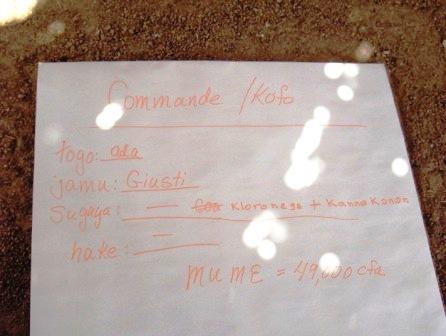 Commande / Kofo
togo: ada
jamu: Giusti
Sugaya: — Kloronege + Kanna Konon
hake: —
MUME = 49,000 cfa